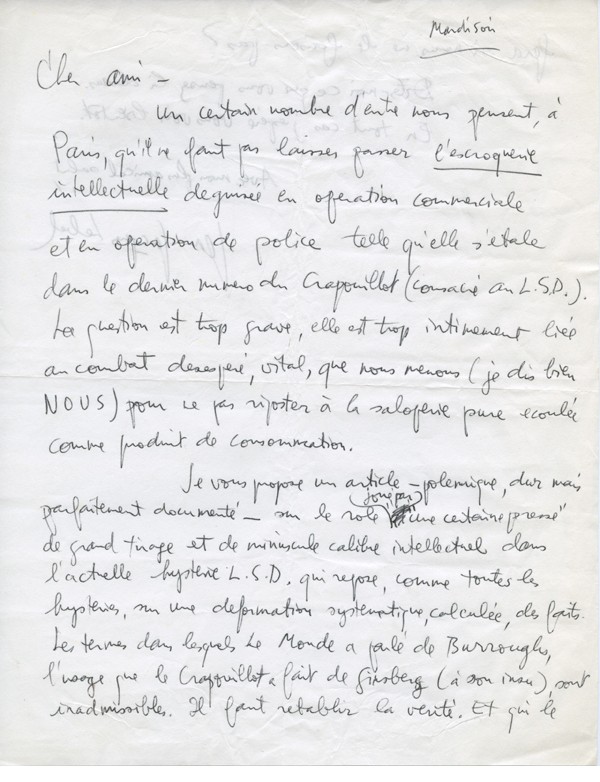 Mardi soir
Cher ami –
Un certain nombre d'entre nous pensent, à
Paris, qu'il ne faut pas laisser passer l'escroquerie
intellectuelle deguisée en operation commerciale
et en operation de police telle qu'elle s'étale
dans le dernier numero du Crapouillot (consacré au L.S.D.).
La question est trop grave, elle est trop intimement liée
au combat desespéré, vital, que nous menons (je dis bien
NOUS) pour ne pas riposter à la saloperie pure ecoulée
comme produit de consommation.
Je vous propose un article – polemique, dur mais
parfaitement documenté – sur le role joué par une certaine presse
de grand tirage et de minuscule calibre intellectuel dans
l'actuelle hysterie L.S.D. qui repose, comme toutes les
hysteries, sur une deformation systematique, calculée, des faits.
Les termes dans lesquels Le Monde a parlé de Burroughs,
l'usage que le Crapouillot a fait de Ginsberg (à son insu), sont
inadmissibles. Il faut retablir la verité. Et qui le